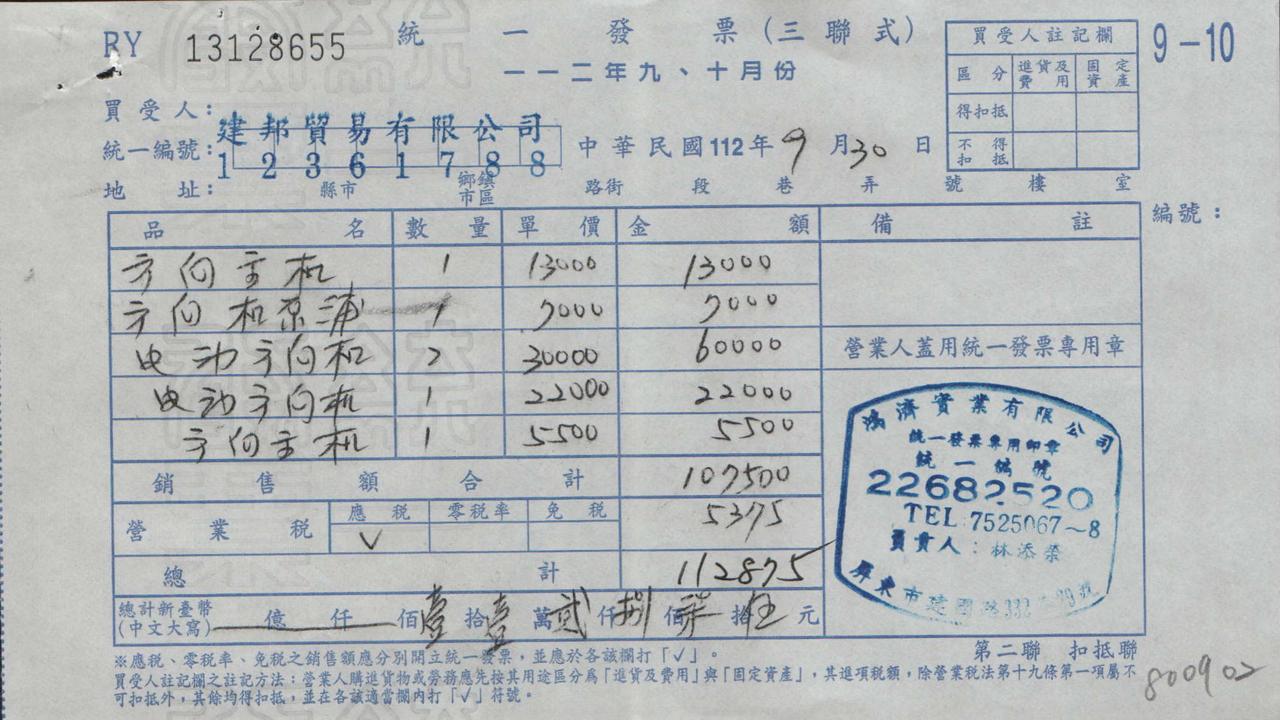 RY 13128655 統一發票(三聯式)
一一二年九、十月份
9-10
買受人註記欄
區分 進貨及費用 固定資產
得扣抵
不得扣抵
買受人: 建邦貿易有限公司
統一編號: 12361788
中華民國112年9月30日
地址: 縣市 鄉鎮市區 路街 段 巷 弄 號 樓 室
編號:
品名 數量 單價 金額 備註
方向主机 1 13000 13000
方向机泵浦 1 7000 7000
电动方向机 2 30000 60000
电动方向机 1 22000 22000
方向主机 1 5500 5500
營業人蓋用統一發票專用章
銷售額合計 107500
營業稅 應稅 零稅率 免稅 5375
V
總計 112875
總計新臺幣(中文大寫) 億 仟 佰壹拾壹萬貳仟捌佰柒拾伍元
鴻濟實業有限公司
統一發票專用印章
統一編號
22682520
TEL:7525067~8
負責人:林添榮
屏東市建國路332
第二聯 扣抵聯
※應稅、零稅率、免稅之銷售額應分別開立統一發票,並應於各該欄打「✓」。
買受人註記欄之註記方法:營業人購進貨物或勞務應先按其用途區分為「進貨及費用」與「固定資產」,其進項稅額,除營業稅法第十九條第一項屬不
可扣抵外,其餘均得扣抵,並在各該適當欄內打「✓」符號。
800902